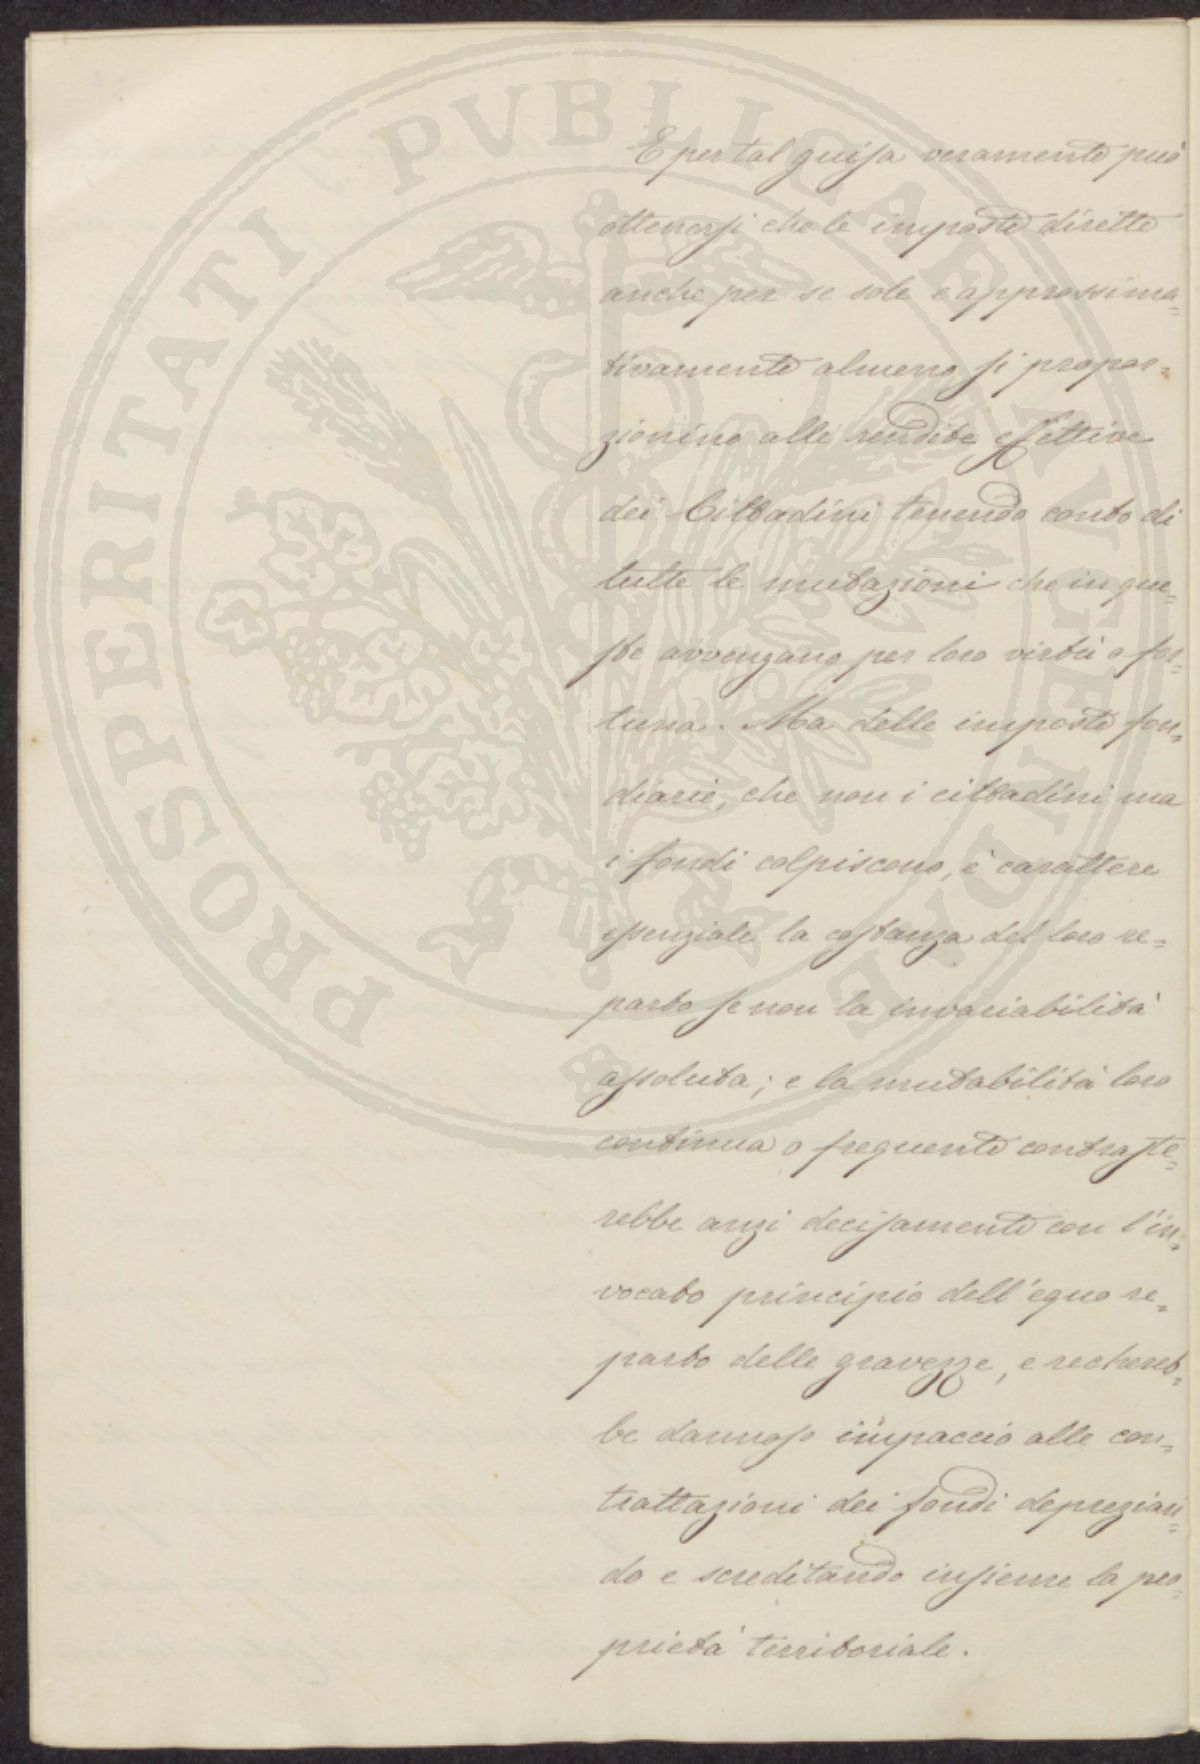 PROSPERITATI PVBLICAE AVGENDAE
E per tal guisa veramente può
ottenersi che le imposte dirette
anche per se sole e approssima=
tivamente almeno si propor=
zionino alle rendite effettive
dei Cittadini tenendo conto di
tutte le mutazioni che in que=
ste avvengano per loro virtù o for=
tuna. Ma delle imposte fon=
diarie, che non i cittadini ma
i fondi colpiscono, è carattere
essenziale la costanza del loro re=
parto se non la invariabilità
assoluta; e la mutabilità loro
continua o frequente contraste=
rebbe anzi decisamente con l'in=
vocato principio dell'equo re=
parto delle gravezze, e rechereb=
be dannoso impaccio alle con=
trattazioni dei fondi deprezian=
do e screditando insieme la pro=
prietà territoriale.